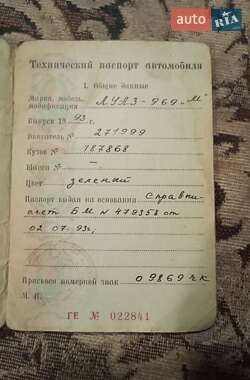 auto RIA
Технический паспорт автомобиля
I. Общие данные
Марка, модель, модификация ЛУАЗ-969-"М"
Выпуск 1993 г.
Двигатель № 271999
Кузов № 187868
Шасси № –
Цвет зеленый
Паспорт выдан на основании справки
счет БМ N 479358 от
02.07.93г.
Присвоен номерной знак 09869 ЧК
М. П.
ГЕ № 022841